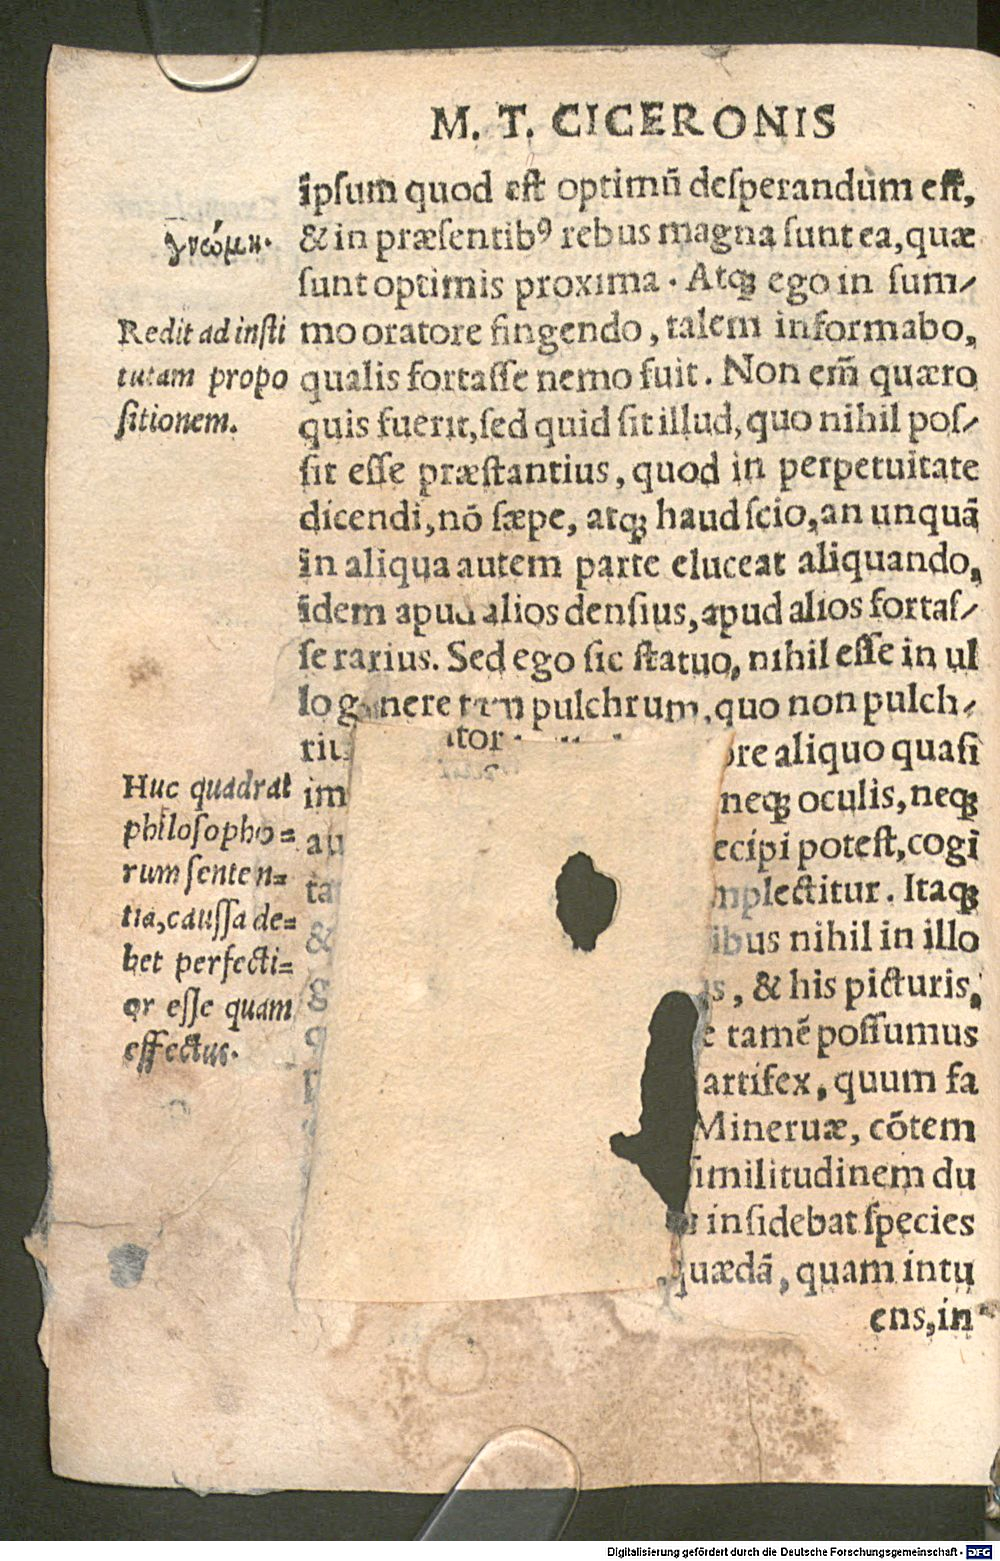 M. T. CICERONIS
ipsum quod est optimū desperandum est,
& in præsentibꝰ rebus magna sunt ea, quæ
sunt optimis proxima. Atqꝫ ego in sum⸗
mo oratore fingendo, talem informabo,
qualis fortasse nemo fuit. Non em̄ quæro
quis fuerit, sed quid sit illud, quo nihil pos⸗
sit esse præstantius, quod in perpetuitate
dicendi, nō sæpe, atqꝫ haud scio, an unquā
in aliqua autem parte eluceat aliquando,
idem apud alios densius, apud alios fortas⸗
se rarius. Sed ego sic statuo, nihil esse in ul
lo genere tam pulchrum, quo non pulch⸗
riu
ore aliquo quasi
im
neqꝫ oculis, neqꝫ
au
ecipi potest, cogi
ta
mplectitur. Itaqꝫ
&
ibus nihil in illo
g
as, & his picturis,
e tamē possumus
artifex, quum fa
Mineruæ, cōtem
similitudinem du
insidebat species
quædā, quam intu
ens, in
γνώμη.
Redit ad insti
tutam propo
sitionem.
Huc quadrat
philosopho=
rum senten=
tia, caussa de=
bet perfecti=
or esse quam
effectus.
Digitalisierung gefördert durch die Deutsche Forschungsgemeinschaft - DFG